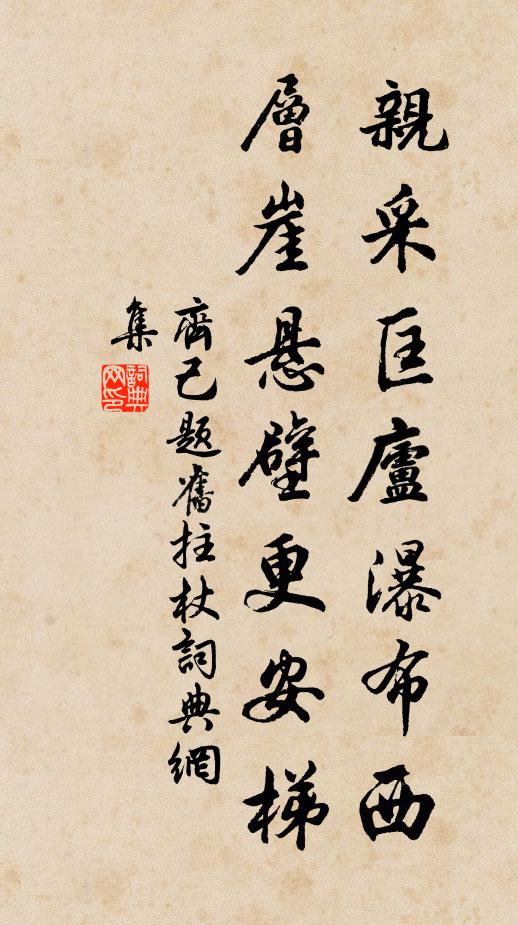 親采匡廬瀑布西
層崖懸壁更安梯
齊己題舊拄杖詞典網
集
詞典
网印